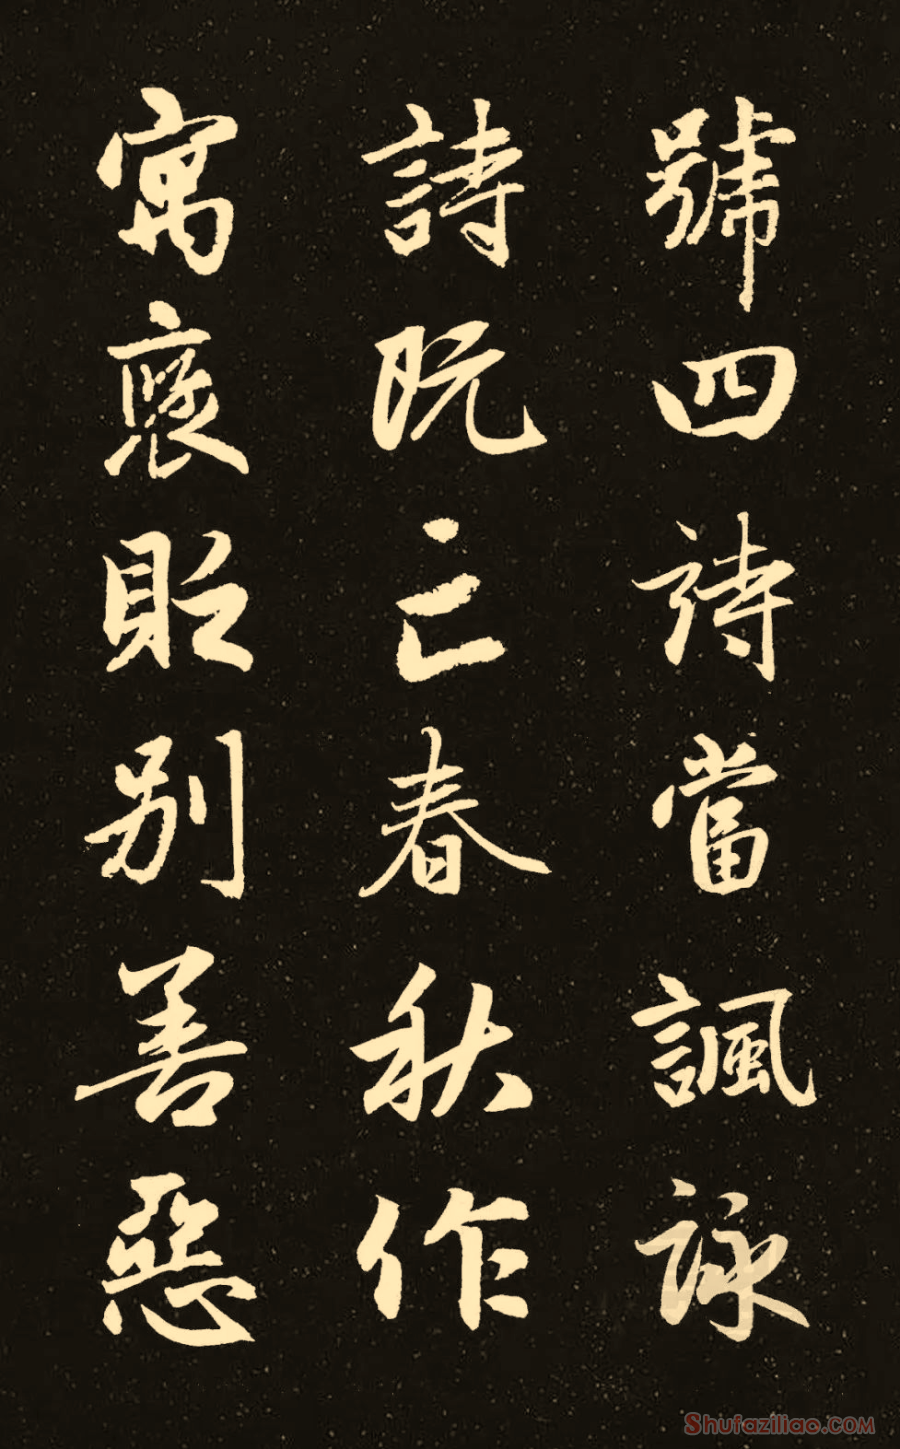 號四詩當諷詠
詩既亡春秋作
寓襃貶别善惡
Shufaziliao.COM